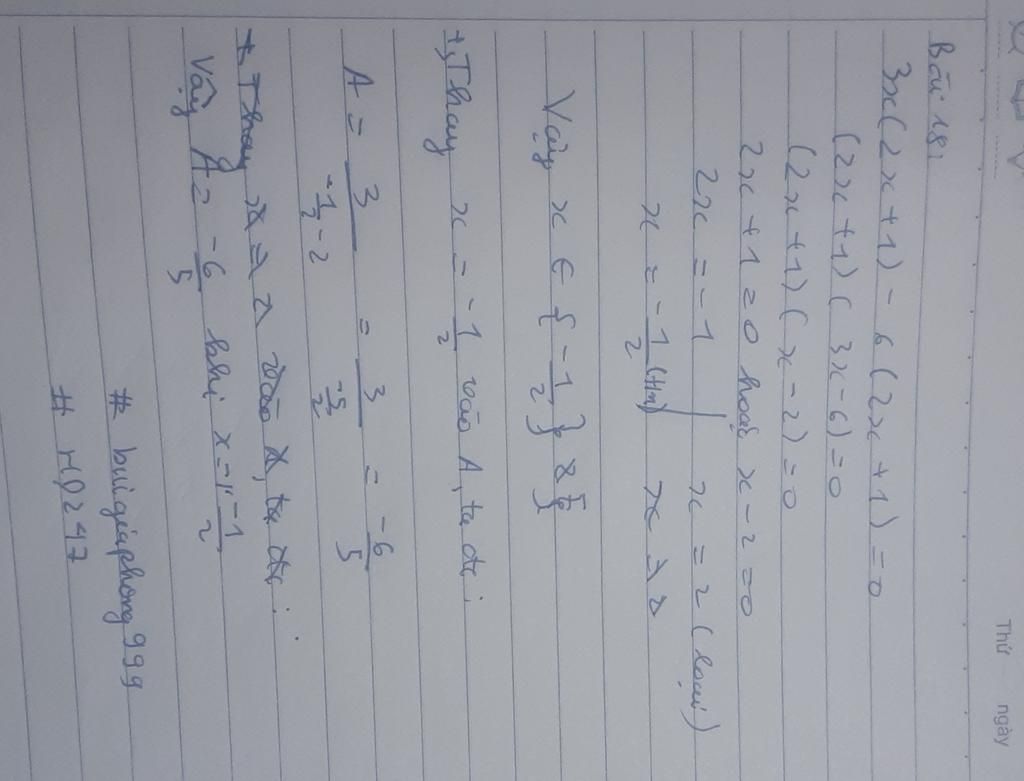 Thứ
ngày
Bài 18:
3x(2x+1) - 6(2x+1) = 0
(2x+1)(3x-6) = 0
(2x+1)(x-2) = 0
2x+1 = 0 hoặc x-2 = 0
2x = -1 | x = 2 (loại)
x = -1/2 (t/m)
Vậy x ∈ {-1/2}
+, Thay x = -1/2 vào A, ta đc:
A = 3/(-1/2 - 2) = 3/(-5/2) = -6/5
+, Thay x = 2 vào A, ta đc:
Vậy A = -6/5 khi x = -1/2
# buigiaphong999
# HD247